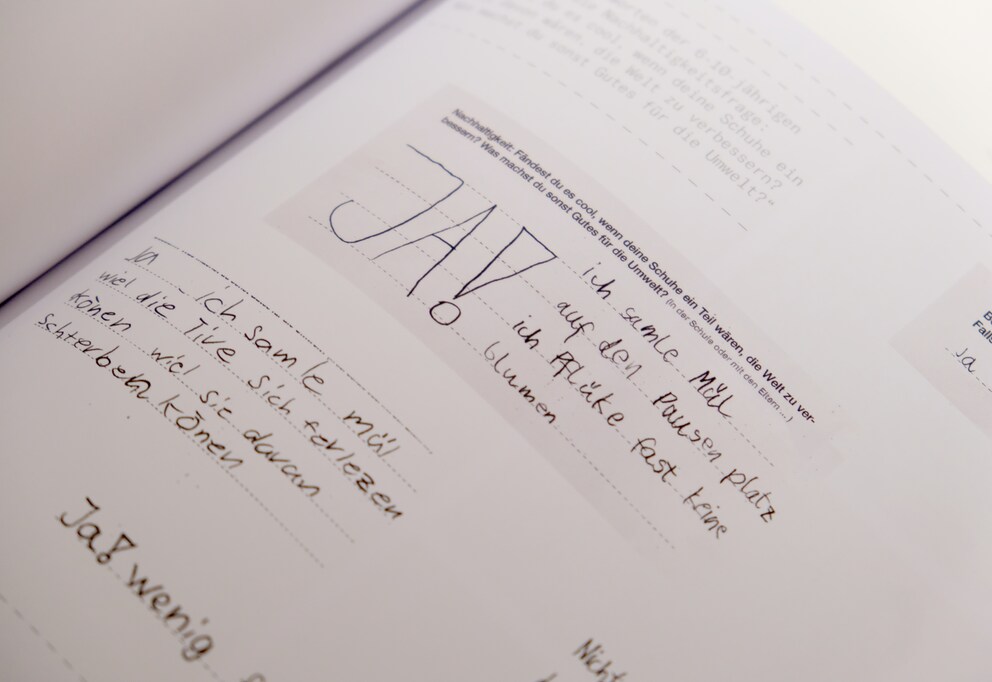 der 6-10-jährigen
Nachhaltigkeitsfrage:
es cool, wenn deine Schuhe ein
wären, die Welt zu verbessern?
du sonst Gutes für die Umwelt?"
Nachhaltigkeit: Fändest du es cool, wenn deine Schuhe ein Teil wären, die Welt zu ver-
bessern? Was machst du sonst Gutes für die Umwelt? (In der Schule oder mit den Eltern ...)
JA!
ich samle Mül
auf den Pausen platz
ich Pflüke fast keine
blumen
Ja ich samle mül
weil die Tire sich ferlezen
könen wiel sie daran
schterben könen
Ja! wenig
Nicht
Falls
Ja